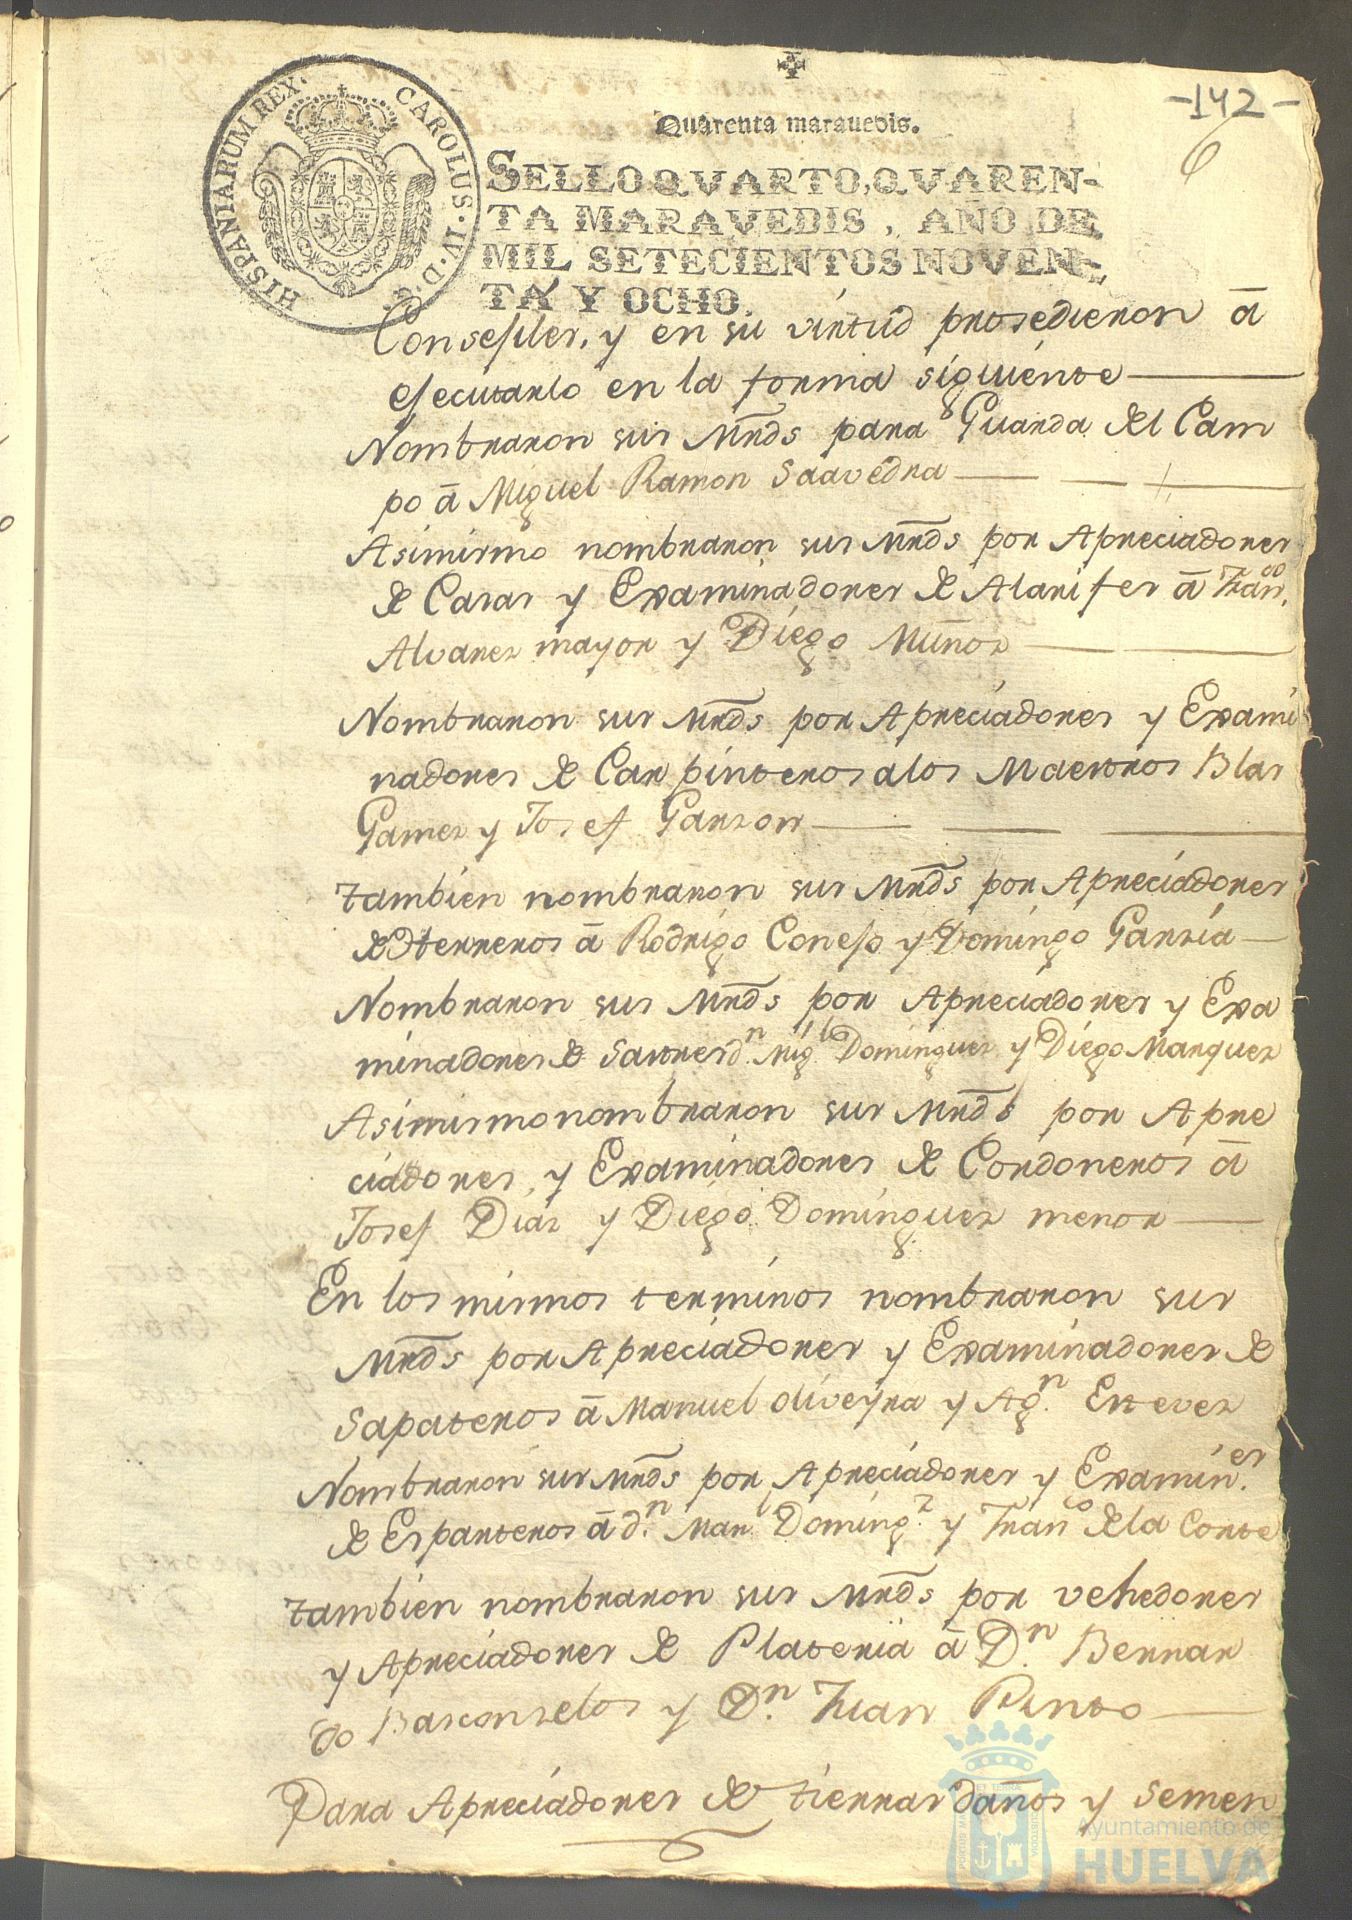 -142-
6
Quarenta marauedis.
HISPANIARUM REX. CAROLUS. IV. D. G.
SELLO QVARTO, QVAREN-
TA MARAVEDIS, AÑO DE
MIL SETECIENTOS NOVEN-
TA Y OCHO.
y en su virtud prosedieron â
ejecutarlo en la forma siguiente
Nombraron sus Mrds para Guarda del Cam
po â Miguel Ramon Saavedra
Asimismo nombraron sus Mrds por Apreciadores
de Casas y Examinadores de Alarifes â Franco.
Alvarez mayor y Diego Muñoz
Nombraron sus Mrds por Apreciadores y Exami
nadores de Carpinteros alos Maestros Blas
Gamez y Josef Garzon
tambien nombraron sus Mrds por Apreciadores
de terreros â Rodrigo Conejo y Domingo Garzia
Nombraron sus Mrds por Apreciadores y Exa
minadores de Sastres dn. Migl. Dominguez y Diego Marquez
Asimismo nombraron sus Mrds por Apre
ciadores, y Examinadores de Cordoneros â
Josef Diaz y Diego Dominguez menor
En los mismos terminos nombraron sus
Mrds por Apreciadores y Examinadores de
Sapateros â Manuel Oliveyra y Agn. Estevez
Nombraron sus Mrds por Apreciadores y Examines.
de Esparteros â dn. Manl Domingz. y Franco de la Corte
tambien nombraron sus Mrds por vehedores
y Apreciadores de Plateria â Dn. Bernar
do Basconzelos y Dn. Juan Pinto
Para Apreciadores de tierras daños y semen
Ayuntamiento de
HUELVA